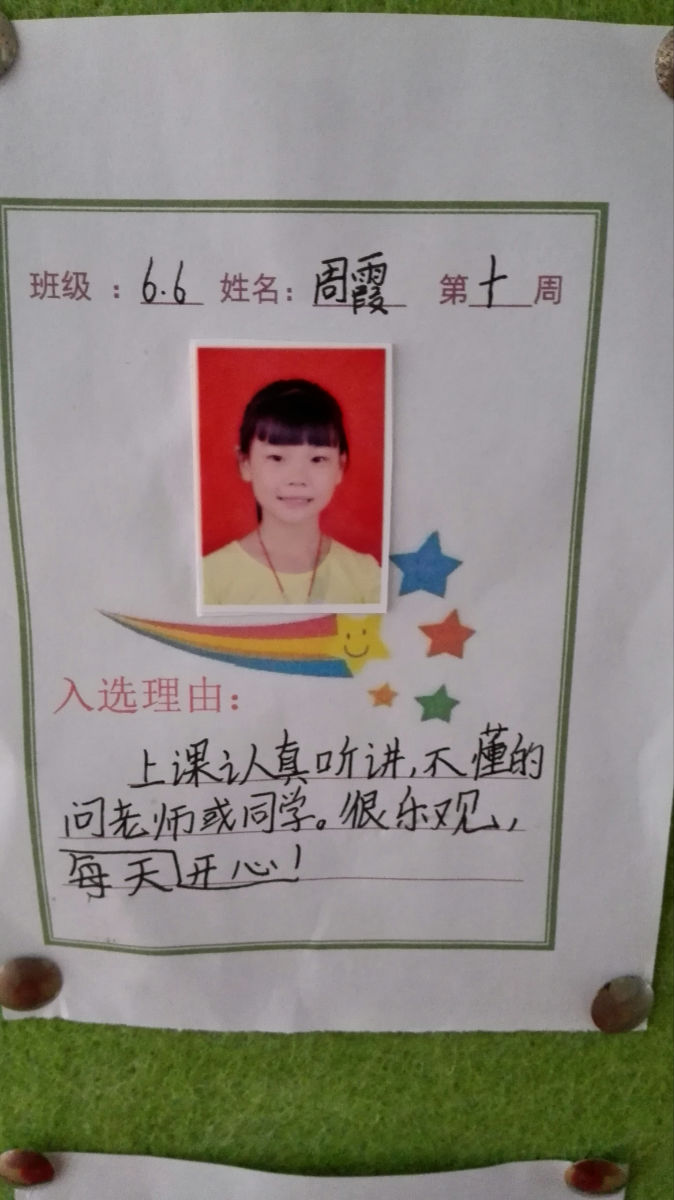 班级：6.6 姓名：周霞 第十周
入选理由：
上课认真听讲,不懂的
问老师或同学。很乐观,
每天开心!